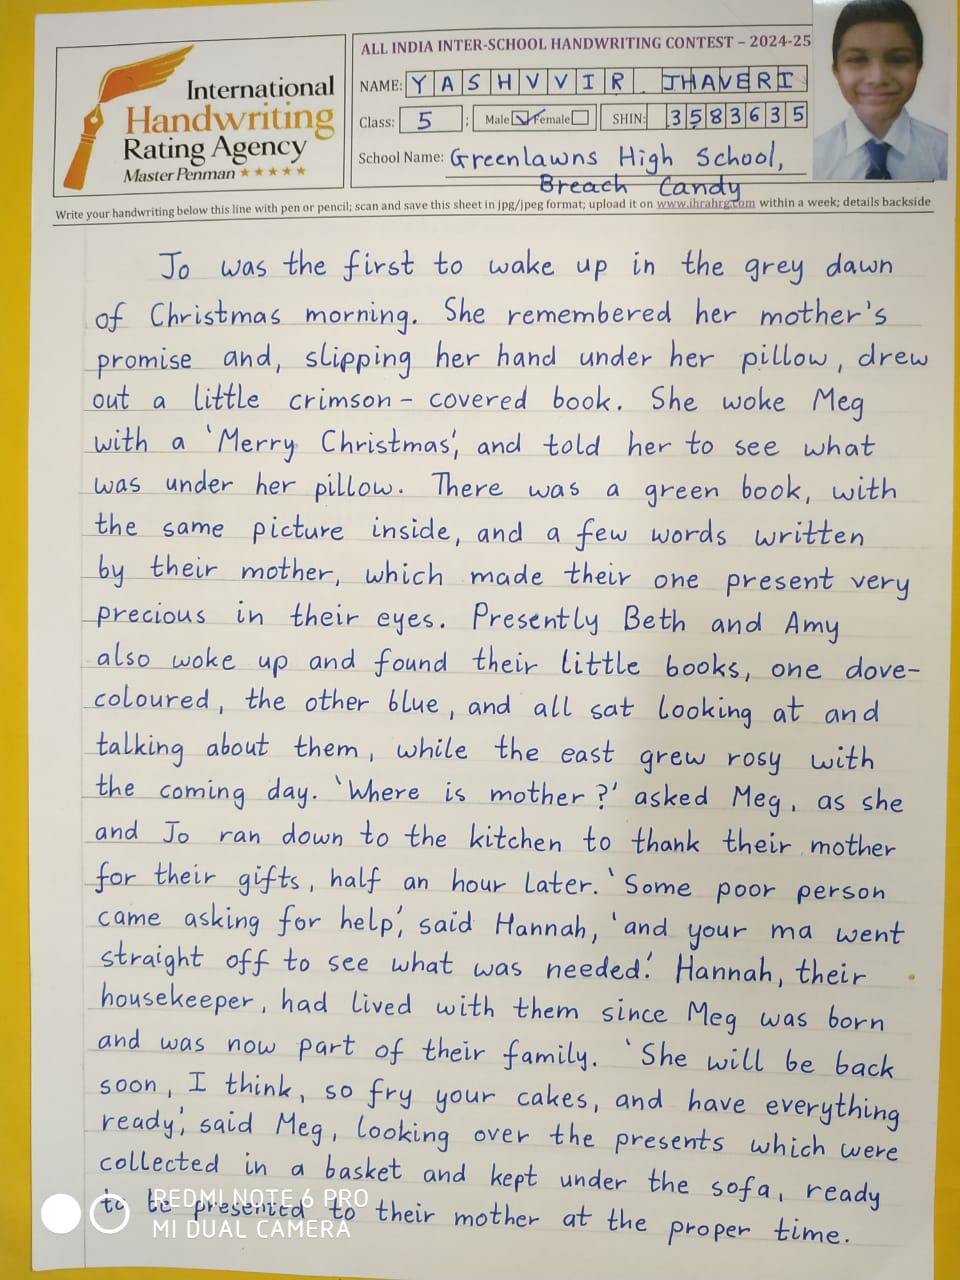 International
Handwriting
Rating Agency
Master Penman ★★★★★
ALL INDIA INTER-SCHOOL HANDWRITING CONTEST – 2024-25
NAME: YASHVVIR . JHAVERI
Class: 5 ; Male Female SHIN: 3583635
School Name: Greenlawns High School,
Breach Candy
Write your handwriting below this line with pen or pencil; scan and save this sheet in jpg/jpeg format; upload it on www.ihrahrg.com within a week; details backside
Jo was the first to wake up in the grey dawn
of Christmas morning. She remembered her mother's
promise and, slipping her hand under her pillow, drew
out a little crimson - covered book. She woke Meg
with a 'Merry Christmas', and told her to see what
was under her pillow. There was a green book, with
the same picture inside, and a few words written
by their mother, which made their one present very
precious in their eyes. Presently Beth and Amy
also woke up and found their little books, one dove-
coloured, the other blue, and all sat looking at and
talking about them, while the east grew rosy with
the coming day. 'Where is mother?' asked Meg, as she
and Jo ran down to the kitchen to thank their mother
for their gifts, half an hour later. 'Some poor person
came asking for help', said Hannah, 'and your ma went
straight off to see what was needed.' Hannah, their
housekeeper, had lived with them since Meg was born
and was now part of their family. 'She will be back
soon, I think, so fry your cakes, and have everything
ready', said Meg, looking over the presents which were
collected in a basket and kept under the sofa, ready
to be presented to their mother at the proper time.
REDMI NOTE 6 PRO
MI DUAL CAMERA